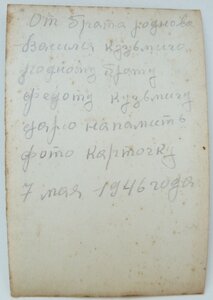 От брата роднова
Василя кузьмича
родному брату
федоту кузьмичу
дарю напамить
фото карточку
7 мая 1946 года